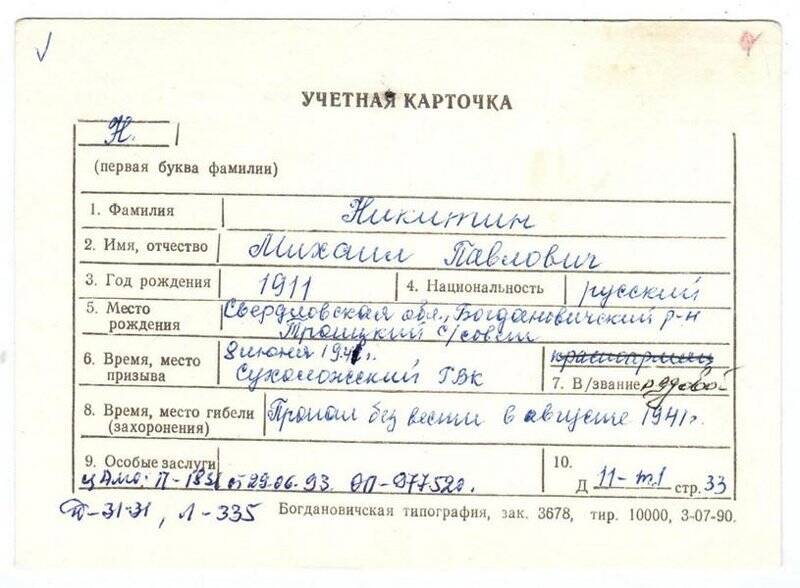 УЧЕТНАЯ КАРТОЧКА
Н.
(первая буква фамилии)
1. Фамилия Никитин
2. Имя, отчество Михаил Павлович
3. Год рождения 1911 4. Национальность русский
5. Место рождения Свердловская обл., Богдановичский р-н
Троицкий с/совет
6. Время, место призыва 8 июня 1941г.
Сухоложский ГВК
красноармеец
7. В/звание рядовой
8. Время, место гибели (захоронения) Пропал без вести в августе 1941г.
9. Особые заслуги
ЦАМО: П-183 от 29.06.93. ОП-977520.
10. Д 11-т.1 стр. 33
П-31-31, Л-335
Богдановичская типография, зак. 3678, тир. 10000, 3-07-90.